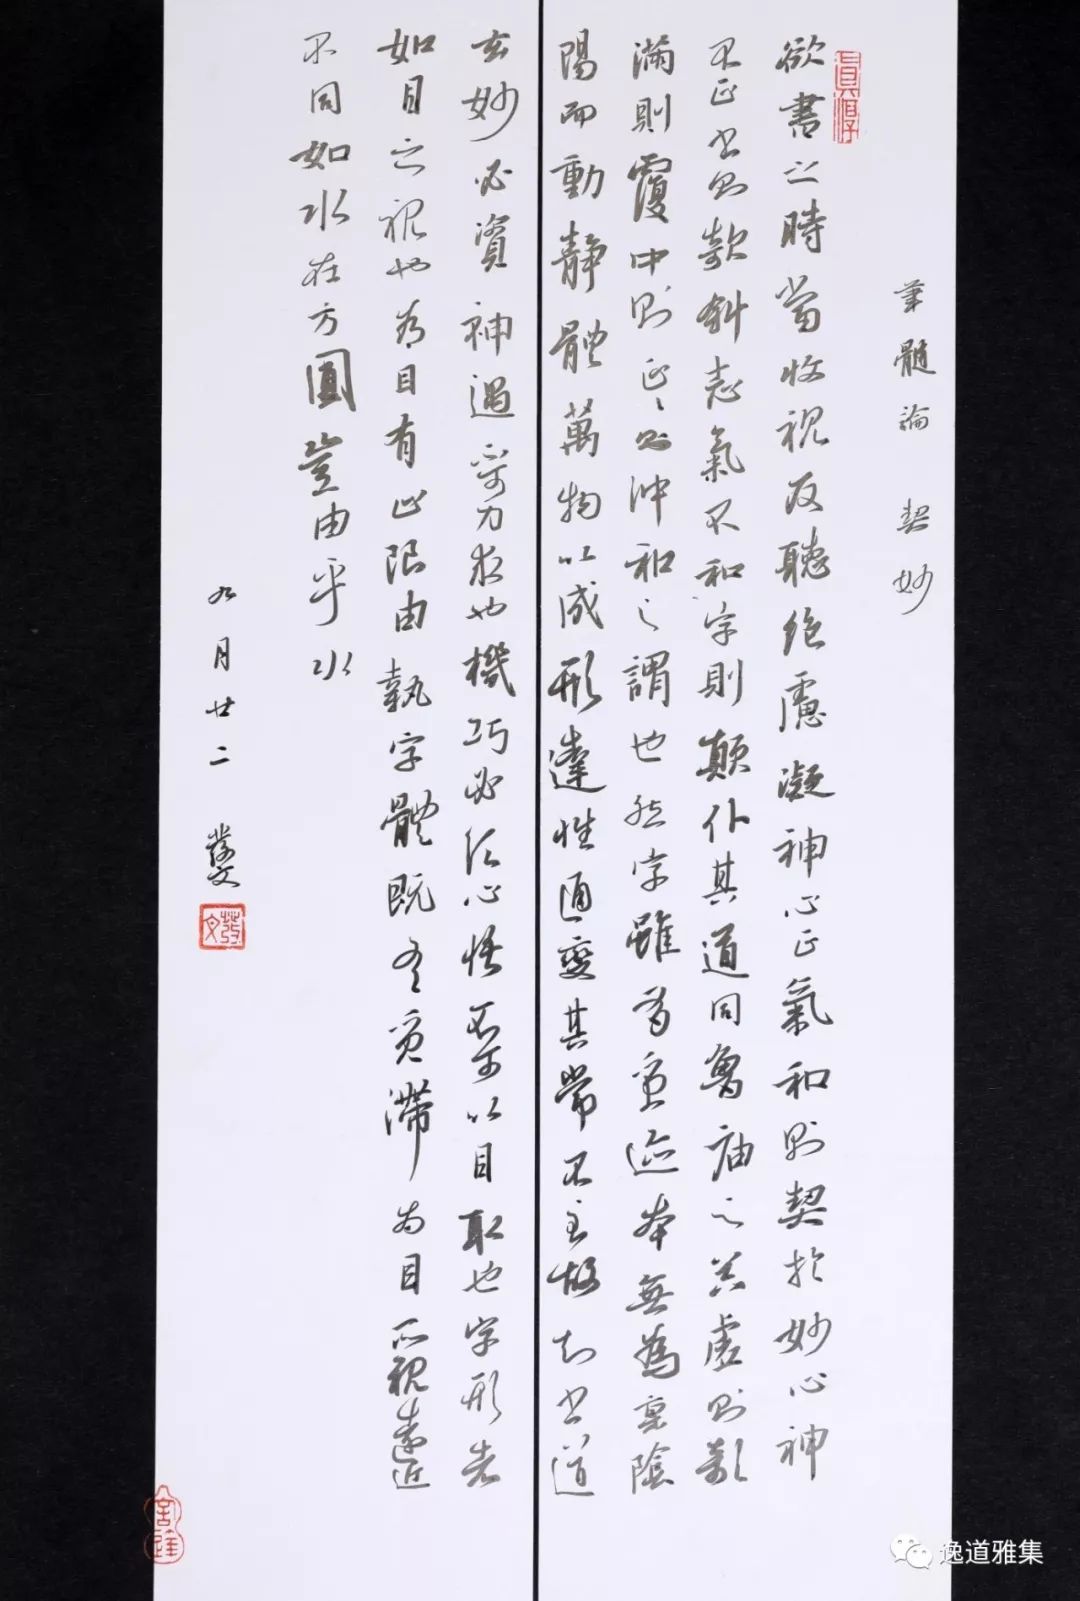 筆髓論 契妙
欲書之時當收視反聽絕慮凝神心正氣和則契於妙心神
不正書則欹斜志氣不和字則顛仆其道同魯廟之器虛則欹
滿則覆中則正〻則沖和之謂也然字雖有質迹本無為稟陰
陽而動靜體萬物以成形達性通變其常不主故知書道
玄妙必資神遇不可力求也機巧必須心悟不可以目取也字形者
如目之視也為目有止限由執字體既有質滯為目所視遠近
不同如水在方圓豈由乎水
九月廿二 發文
發文
逸道雅集